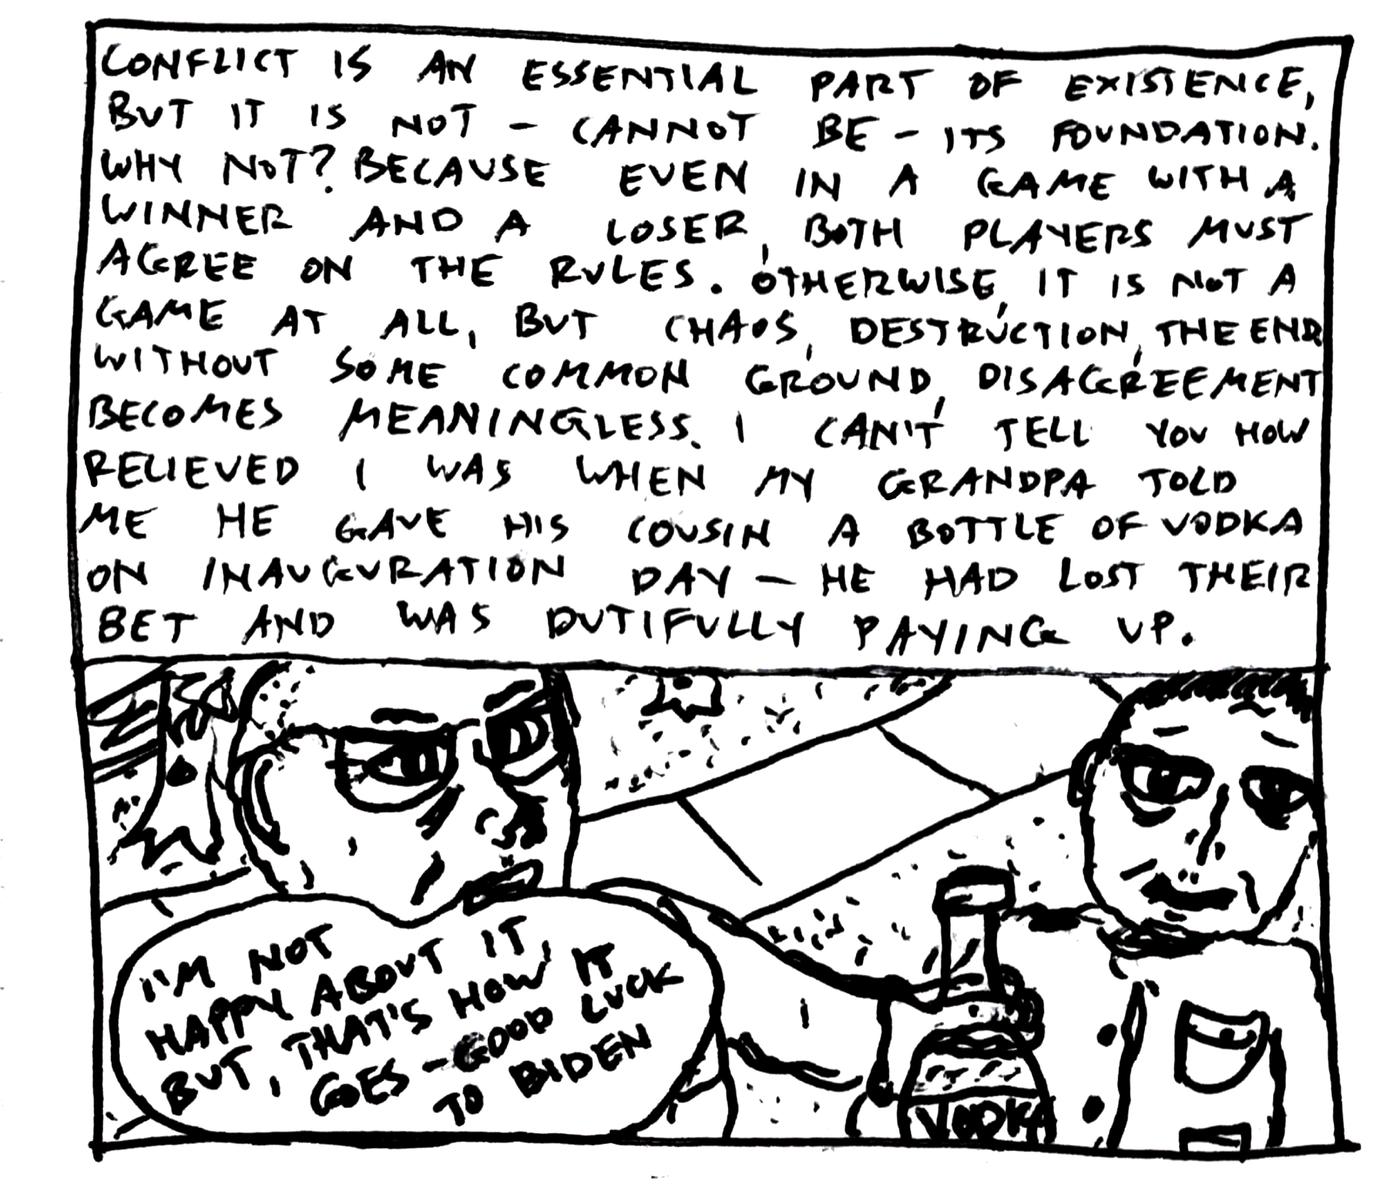 CONFLICT IS AN ESSENTIAL PART OF EXISTENCE,
BUT IT IS NOT - CANNOT BE - ITS FOUNDATION.
WHY NOT? BECAUSE EVEN IN A GAME WITH A
WINNER AND A LOSER, BOTH PLAYERS MUST
AGREE ON THE RULES. OTHERWISE, IT IS NOT A
GAME AT ALL, BUT CHAOS, DESTRUCTION, THE END
WITHOUT SOME COMMON GROUND, DISAGREEMENT
BECOMES MEANINGLESS. I CAN'T TELL YOU HOW
RELIEVED I WAS WHEN MY GRANDPA TOLD
ME HE GAVE HIS COUSIN A BOTTLE OF VODKA
ON INAUGURATION DAY - HE HAD LOST THEIR
BET AND WAS DUTIFULLY PAYING UP.
I'M NOT
HAPPY ABOUT IT,
BUT, THAT'S HOW IT
GOES - GOOD LUCK
TO BIDEN
VODKA